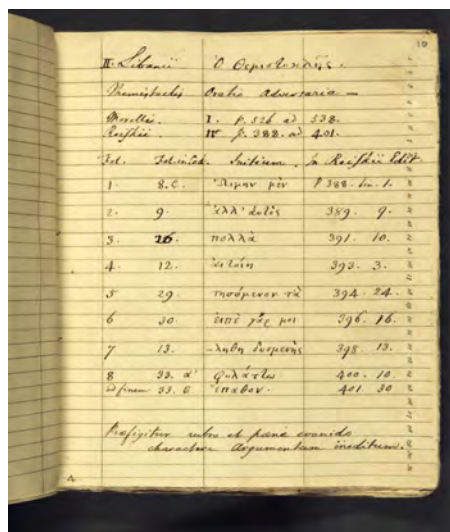 10
II. Libanii Ὁ Θεμιστοκλῆς.
Themistoclis Oratio Adversaria —
Morellii. I. p. 526 ad 538.
Reiskii IV p. 388. ad 401.
Fol. Fol. in Cod. Initium. In Reiskii Edit.
1. 8. 6. μὲν P. 388. lin. 1.
2. 9. ἀλλ' αὐτὸς 389. 9.
3. 26. πολλὰ 391. 10.
4. 12. 393. 3.
5 29. τησόμενον τὰ 394. 24.
6 30. εἰπὲ γάρ μοι 396. 16.
7 13. –λήθη δυσμενὴς 398. 13.
8 33. a' φυλάττω 400. 10.
ad finem 33. 6. ἔπαθον. 401. 30
Praefigitur rubro et paene evanido
charactere Argumentum ineditum.